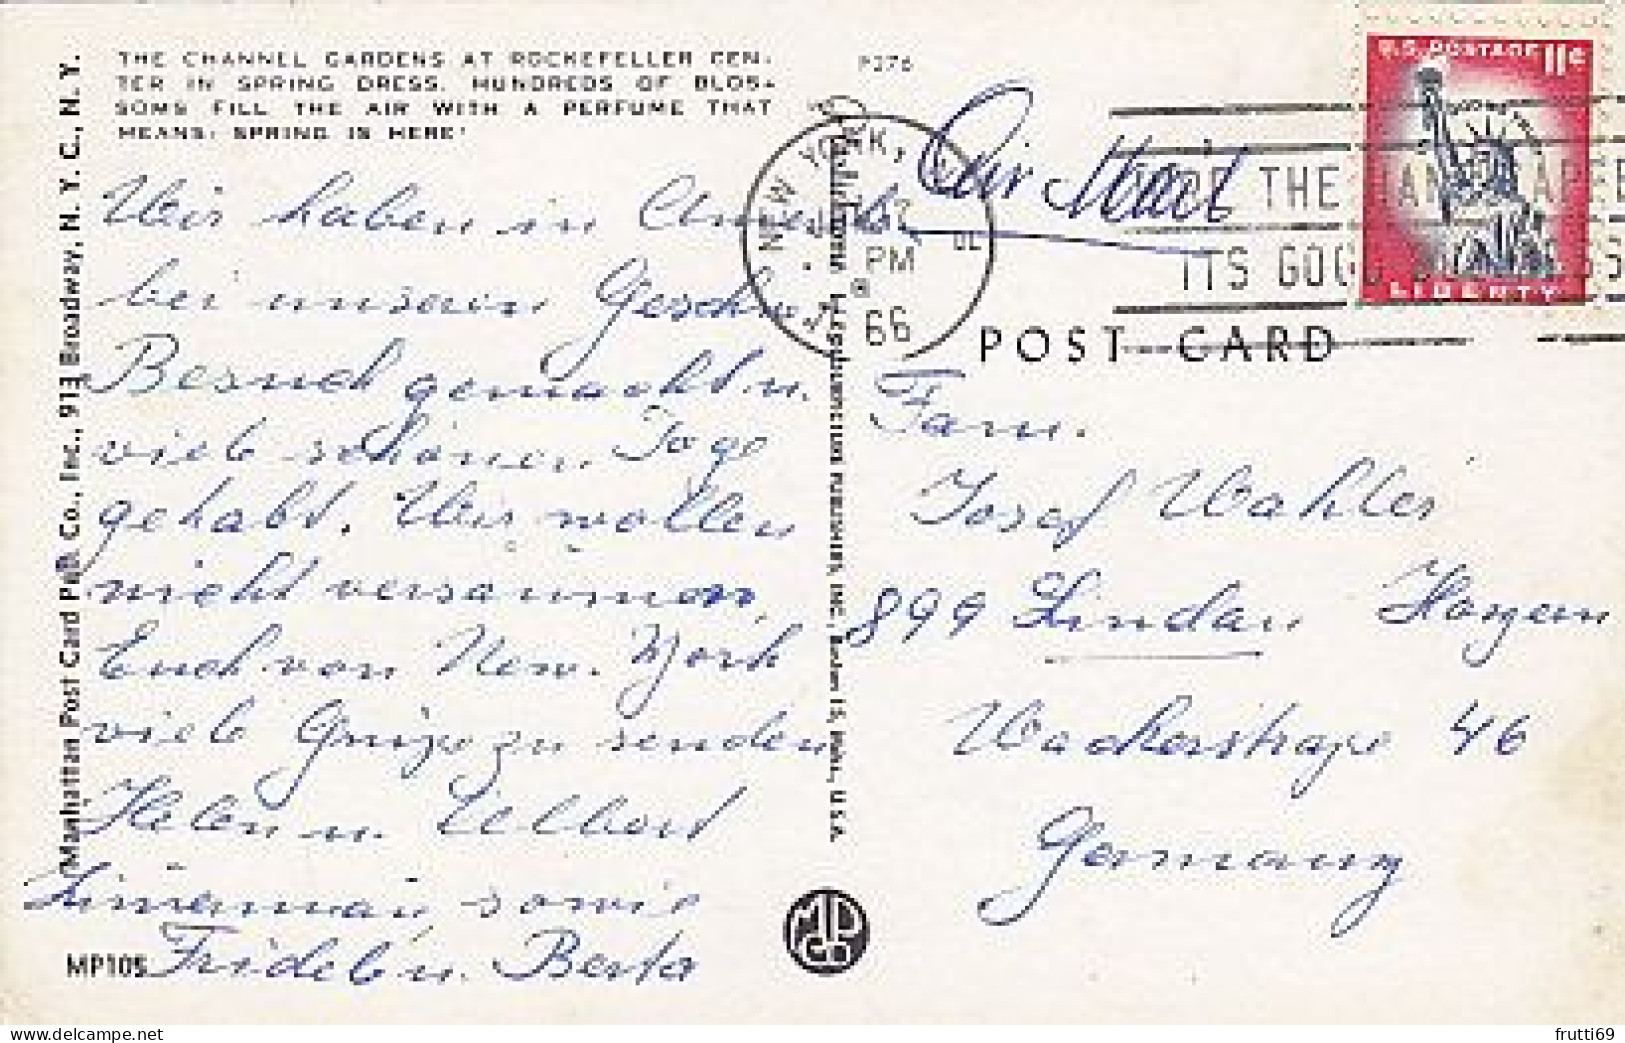 THE CHANNEL GARDENS AT ROCKEFELLER CEN-
TER IN SPRING DRESS. HUNDREDS OF BLOS-
SOMS FILL THE AIR WITH A PERFUME THAT
MEANS: SPRING IS HERE!
P276
Wir haben in Amerika
bei unseren Geschw.
Besuch gemacht u.
viele schöne Tage
gehabt. Wir wollen
nicht versäumen,
Euch von New. York
viele Grüße zu senden
Helen u.
sowie
Fridel u. Berta
MP105
Manhattan Post Card Pub. Co., Inc., 913 Broadway, N. Y. C., N. Y.
PUBLISHERS, INC. Boston 15, Mass., U.S.A.
MLD
CO
Air Mail
NEW YORK,
PM
66
THE
ITS GOOD
U.S. POSTAGE 11¢
LIBERTY
POST CARD
Fam.
Josef Wahler
899 Lindau
46
Germany
frutti69
delcampe.net